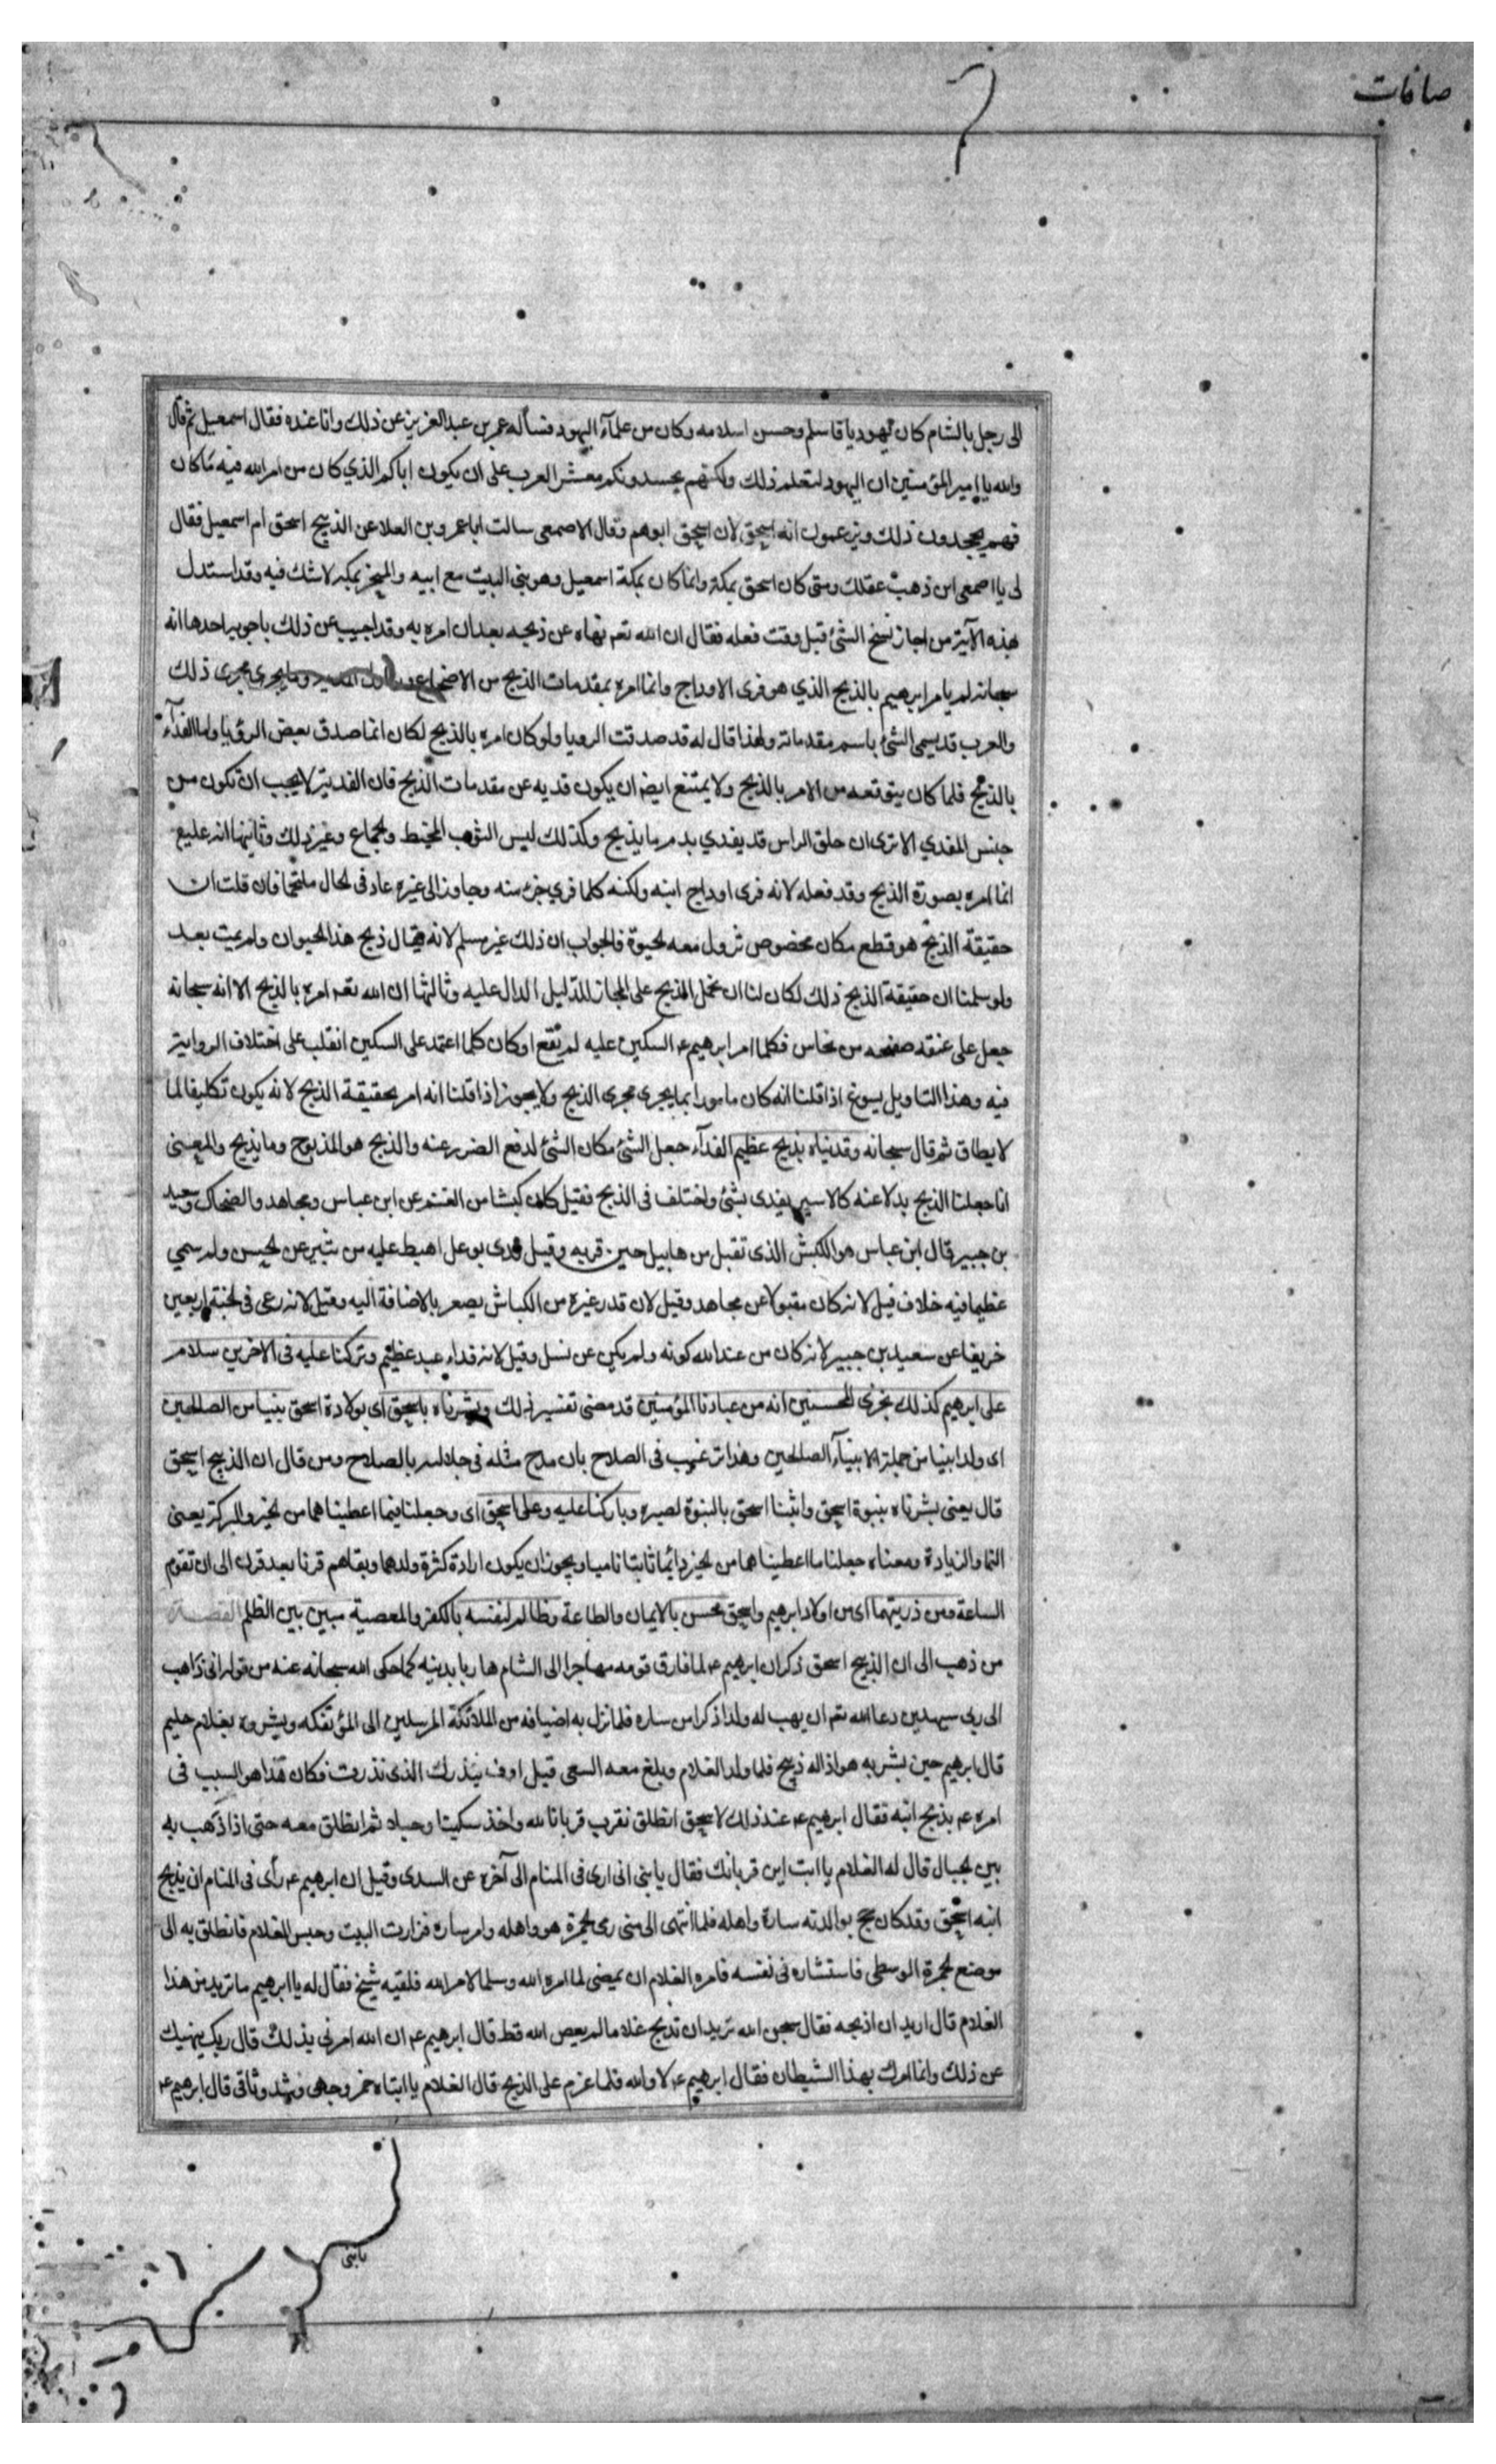 صافات
الى رجل بالشام كان يهوديا فاسلم وحسن اسلامه وكان من علمآء اليهود فسأله عمر بن عبد العزيز عن ذلك وانا عنده فقال اسمعيل ثم قال
والله يا امير المؤمنين ان اليهود لتعلم ذلك ولكنهم يحسدونكم معشر العرب على ان يكون اباكم الذي كان من امر الله فيه ما كان
فهم يجحدون ذلك ويزعمون انه اسحق لان اسحق ابوهم وقال الاصمعى سالت ابا عمرو بن العلا عن الذبيح اسحق ام اسمعيل فقال
لى يا اصمعى اين ذهب عقلك ومتى كان اسحق بمكة وانما كان بمكة اسمعيل وهو بنى البيت مع ابيه والمنحر بمكة لا شك فيه وقد استدل
بهذه الآية من اجاز نسخ الشئ قبل وقت فعله فقال ان الله تعم نهاه عن ذبحه بعد ان امره به وقد اجيب عن ذلك باجوبه احدها انه
سبحانه لم يامر ابرهيم بالذبح الذي هو فرى الاوداج وانما امره بمقدمات الذبح من الاضجاع وما يجرى مجرى ذلك
والعرب قد يسمى الشئ باسم مقدماته ولهذا قال له قد صدقت الرويا ولو كان امره بالذبح لكان انما صدق بعض الرؤيا واما الفدآء
بالذبح فلما كان يتوقعه من الامر بالذبح ولا يمتنع ايضا ان يكون فديه عن مقدمات الذبح فان الفدية لا يجب ان تكون من
جنس المفدي الا ترى ان حلق الراس قد يفدي بدم ما يذبح وكذلك لبس الثوب المخيط والجماع وغير ذلك وثانيها انه عليه
انما امره بصورة الذبح وقد فعله لانه فرى اوداج ابنه ولكنه كلما فري جزء منه وجاوز الى غيره عاد فى الحال ملتحما فان قلت ان
حقيقة الذبح هو قطع مكان مخصوص تزول معه الحيوة فالجواب ان ذلك غير مسلم لانه يقال ذبح هذا الحيوان ولم يمت بعد
ولو سلمنا ان حقيقة الذبح ذلك لكان لنا ان نحمل الذبح على المجاز للدليل الدال عليه وثالثها ان الله تعم امره بالذبح الا انه سبحانه
جعل على عنقه صفحه من نحاس فكلما امر ابرهيم عم السكين عليه لم يقع او كان كلما اعتمد على السكين انقلب على اختلاف الرواية
فيه وهذا التاويل يسوغ اذا قلنا انه كان مامورا بما يجرى مجرى الذبح ولا يجوز اذا قلنا انه امر بحقيقة الذبح لانه يكون تكليفا لما
لا يطاق ثم قال سبحانه وفديناه بذبح عظيم الفدآء جعل الشئ مكان الشئ لدفع الضرر عنه والذبح هو المذبوح وما يذبح والمعنى
انا جعلنا الذبح بدلا عنه كالاسير يفدى بشئ واختلف فى الذبح فقيل كان كبشا من الغنم عن ابن عباس ومجاهد والضحاك وسعيد
بن جبير قال ابن عباس هو الكبش الذى تقبل من هابيل حين قربه وقيل فدى بوعل اهبط عليه من ثبير عن الحسن ولم سمي
عظيما فيه خلاف قيل لانه كان مقبولا عن مجاهد وقيل لان قدر غيره من الكباش يصغر بالاضافة اليه وقيل لانه رعى فى الجنة اربعين
خريفا عن سعيد بن جبير لانه كان من عند الله كونه ولم يكن عن نسل وقيل لانه فداء عبد عظيم وتركنا عليه فى الاخرين سلام
على ابرهيم كذلك نجزى المحسنين انه من عبادنا المؤمنين قد مضى تفسير ذلك وبشرناه باسحق اى بولادة اسحق نبيا من الصالحين
اى ولدا نبيا من جملة الانبيآء الصالحين وهذا ترغيب فى الصلاح بان مدح مثله فى جلالته بالصلاح ومن قال ان الذبيح اسحق
قال يعنى بشرناه بنبوة اسحق واتينا اسحق بالنبوة لصبره وباركنا عليه وعلى اسحق اى وجعلنا فيما اعطيناهما من الخير والبركة يعنى
النما والزيادة ومعناه جعلنا ما اعطيناهما من الخير دائما ثابتا ناميا ويجوز ان يكون ارادة كثرة ولدهما وبقاهم قرنا بعد قرن الى ان تقوم
الساعة ومن ذريتهما اى من اولاد ابرهيم واسحق محسن بالايمان والطاعة وظالم لنفسه بالكفر والمعصية مبين بين الظلم القصة
من ذهب الى ان الذبيح اسحق ذكر ان ابرهيم عم لما فارق قومه مهاجرا الى الشام هاربا بدينه كما حكى الله سبحانه عنه من قوله انى ذاهب
الى ربى سيهدين دعا الله تعم ان يهب له ولدا ذكرا من ساره فلما نزل به اضيافه من الملائكة المرسلين الى المؤتفكه وبشروه بغلام حليم
قال ابرهيم حين بشر به هو اذا لله ذبيح فلما ولد الغلام وبلغ معه السعى قيل اوف بنذرك الذى نذرت فكان هذا هو السبب فى
امره عم بذبح ابنه فقال ابرهيم عم عند ذلك لاسحق انطلق نقرب قربانا لله واخذ سكينا وحبلا ثم انطلق معه حتى اذا ذهب به
بين الجبال قال له الغلام يا ابت اين قربانك فقال يا بنى انى ارى فى المنام الى آخره عن السدى وقيل ان ابرهيم عم رأى فى المنام ان يذبح
ابنه اسحق وقد كان حج بوالدته سارة واهله فلما انتهى الى منى رمى الجمرة هو واهله وامر ساره فزارت البيت وحبس الغلام فانطلق به الى
موضع الجمرة الوسطى فاستشاره فى نفسه فامره الغلام ان يمضى لما امره الله وسلما لامر الله فلقيه شيخ فقال له يا ابرهيم ما تريد من هذا
الغلام قال اريد ان اذبحه فقال سبحن الله تريد ان تذبح غلاما لم يعص الله قط قال ابرهيم عم ان الله امرنى بذلك قال ربك ينهيك
عن ذلك وانما امرك بهذا الشيطان فقال ابرهيم عم لا والله فلما عزم على الذبح قال الغلام يا ابتاه خمر وجهى وشد وثاقى قال ابرهيم عم
يا بنى